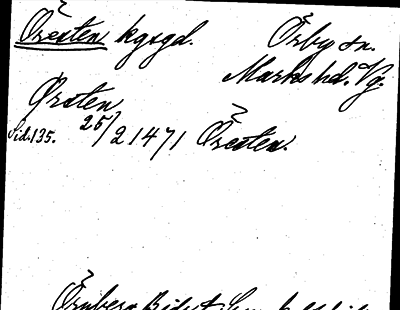 Öresten kgsgd. Örby sn.
Marks hd. Vg.
Ørsten
Sid. 135. 25/2 1471 Öresten.